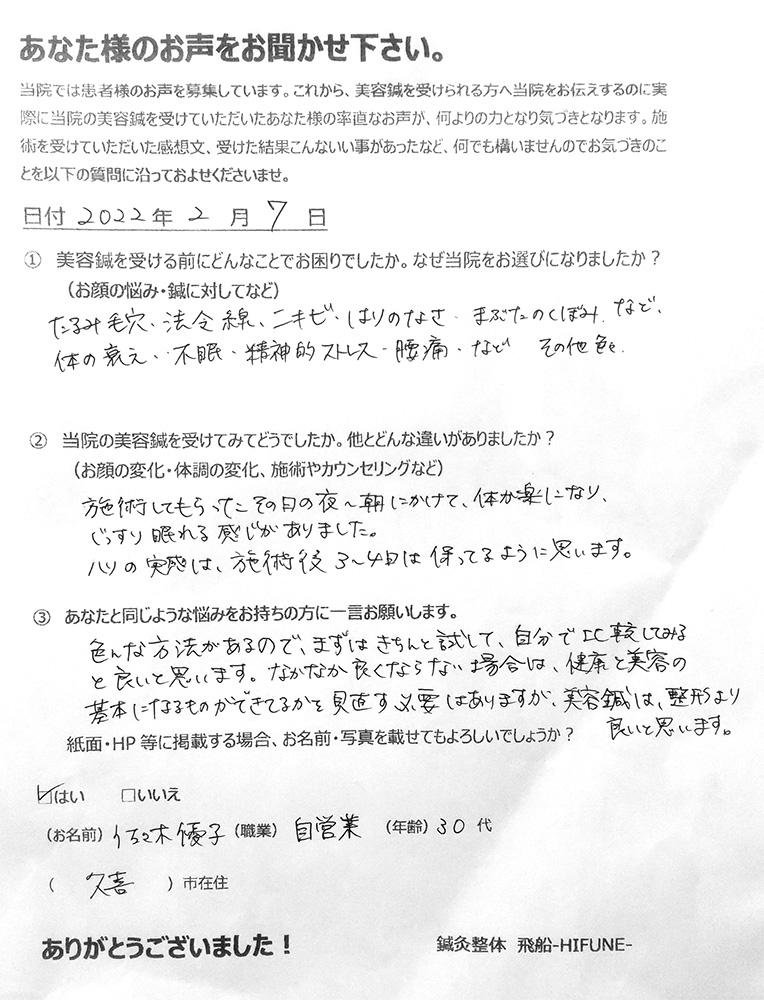 あなた様のお声をお聞かせ下さい。
当院では患者様のお声を募集しています。これから、美容鍼を受けられる方へ当院をお伝えするのに実
際に当院の美容鍼を受けていただいたあなた様の率直なお声が、何よりの力となり気づきとなります。施
術を受けていただいた感想文、受けた結果こんないい事があったなど、何でも構いませんのでお気づきのこ
とを以下の質問に沿っておよせくださいませ。
日付 2022年 2 月 7 日
① 美容鍼を受ける前にどんなことでお困りでしたか。なぜ当院をお選びになりましたか？
（お顔の悩み・鍼に対してなど）
たるみ毛穴、法令線、ニキビ・はりのなさ・まぶたのくぼみ、など、
体の衰え、・不眠・精神的ストレス・腰痛・など その他色々
② 当院の美容鍼を受けてみてどうでしたか。他とどんな違いがありましたか？
（お顔の変化・体調の変化、施術やカウンセリングなど）
施術してもらったその日の夜～朝にかけて、体が楽になり、
ぐっすり眠れる感じがありました。
ハリの実感は、施術後3～4日は保ってるように思います。
③ あなたと同じような悩みをお持ちの方に一言お願いします。
色んな方法があるので、まずはきちんと試して、自分で比較してみる
と良いと思います。なかなか良くならない場合は、健康と美容の
基本になるものができてるかを見直す必要はありますが、美容鍼は、整形より
良いと思います。
紙面・HP 等に掲載する場合、お名前・写真を載せてもよろしいでしょうか？
☑はい □いいえ
（お名前）佐々木優子（職業） 自営業 （年齢）30 代
（ 久喜 ）市在住
ありがとうございました！
鍼灸整体 飛船-HIFUNE-